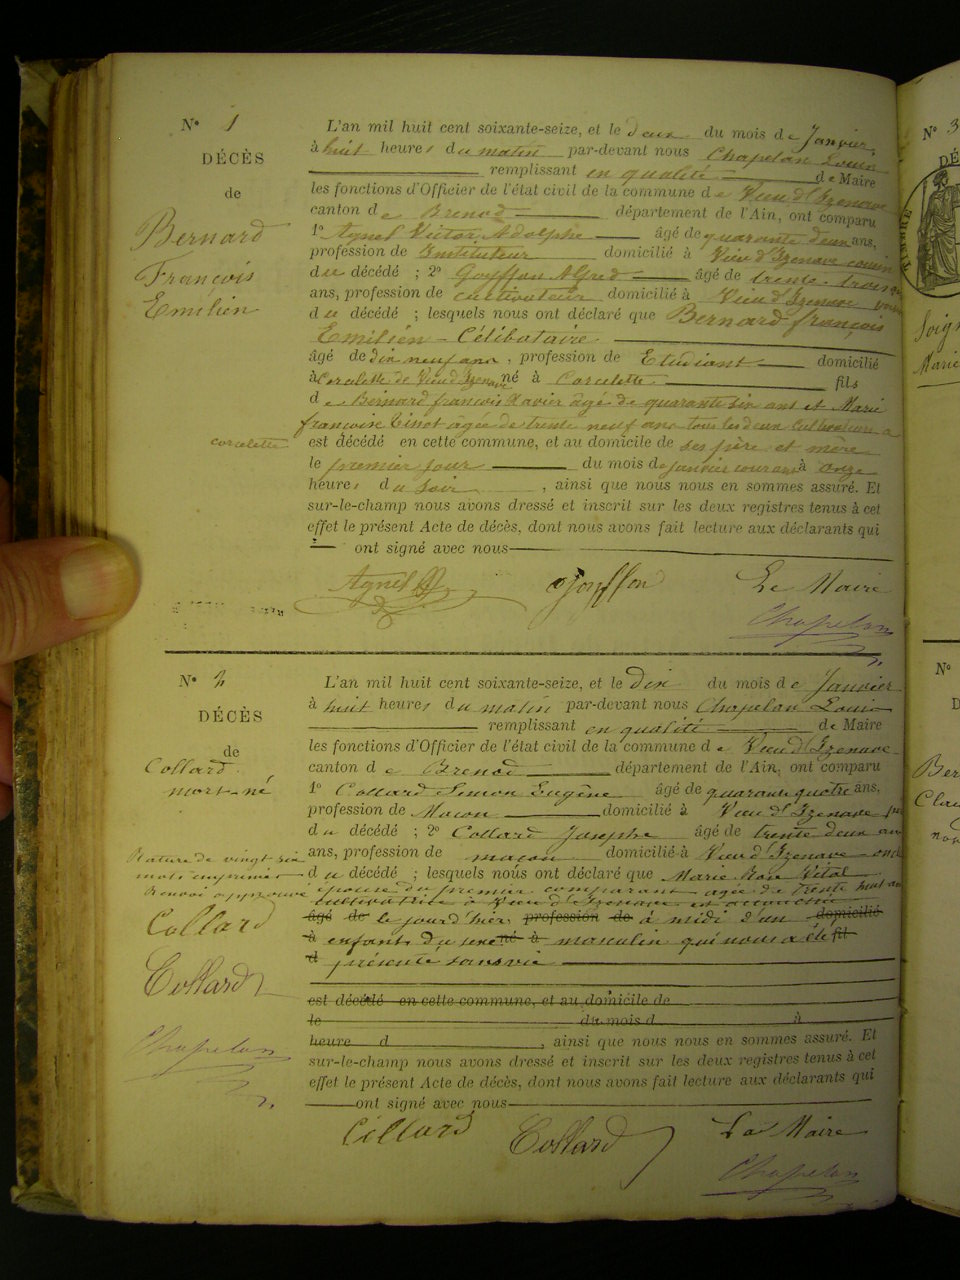 N° 1
DÉCÈS
de
Bernard
François
Emilien
L'an mil huit cent soixante-seize, et le deux du mois de Janvier,
à huit heures du matin par-devant nous Chapelan Louis
remplissant en qualité de Maire
les fonctions d'Officier de l'état civil de la commune de Vieu d'Izenave
canton de Brenod département de l'Ain, ont comparu
1° Agnel Victor Adolphe âgé de quarante deux ans,
profession de Instituteur domicilié à Vieu d'Izenave voisin
du décédé ; 2° Goyffon Alfred âgé de trente-trois
ans, profession de cultivateur domicilié à Vieu d'Izenave voisin
du décédé ; lesquels nous ont déclaré que Bernard françois
Emilien - Célibataire
âgé de dix neuf ans, profession de Etudiant domicilié
à Corcelette de Vieu d'Izenave né à Corcelette fils
de Bernard françois Xavier âgé de quarante six ans et Marie
françoise Tinot âgée de trente neuf ans tous les deux cultivateurs a
corcelette
est décédé en cette commune, et au domicile de ses père et mère
le premier jour du mois de janvier courant à onze
heures du soir, ainsi que nous nous en sommes assuré. Et
sur-le-champ nous avons dressé et inscrit sur les deux registres tenus à cet
effet le présent Acte de décès, dont nous avons fait lecture aux déclarants qui
ont signé avec nous
Agnel Goyffon Le Maire
Chapelan
N° 2
DÉCÈS
de
Collard
mort-né
L'an mil huit cent soixante-seize, et le dix du mois de Janvier
à huit heures du matin par-devant nous Chapelan Louis
remplissant en qualité de Maire
les fonctions d'Officier de l'état civil de la commune de Vieu d'Izenave
canton de Brenod département de l'Ain, ont comparu
1° Collard Simon Eugène âgé de quarante quatre ans,
profession de Macon domicilié à Vieu d'Izenave père
du décédé ; 2° Collard Josephe âgé de trente deux ans
ans, profession de macon domicilié à Vieu d'Izenave oncle
du décédé ; lesquels nous ont déclaré que Marie Vital
épouse du premier comparant agée de trente huit ans
cultivatrice à Vieu d'Izenave est accouchée
âgé de le jour d'hier profession de à midi d'un domicilié
à enfant du sexe né à masculin qui nous a été fil
d présenté sans vie
est décédé en cette commune, et au domicile de
le du mois d à
heure d , ainsi que nous nous en sommes assuré. Et
sur-le-champ nous avons dressé et inscrit sur les deux registres tenus à cet
effet le présent Acte de décès, dont nous avons fait lecture aux déclarants qui
ont signé avec nous
Rature de vingt six
mots imprimés
Renvoi approuvé
Collard
Collard
Chapelan
Collard Collard Le Maire
Chapelan
N° 3
DÉ
TIMBRE
Marie
N°
D
Ber
Clau